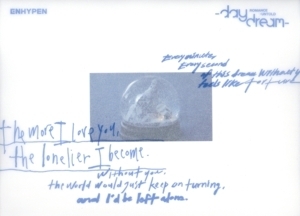 ENHYPEN
-day
dream-
Every minute
Every second
of this dream without you
feels like torture
the more I love you,
the lonelier I become.
without you,
the world would just keep on turning,
and I'd be left alone.